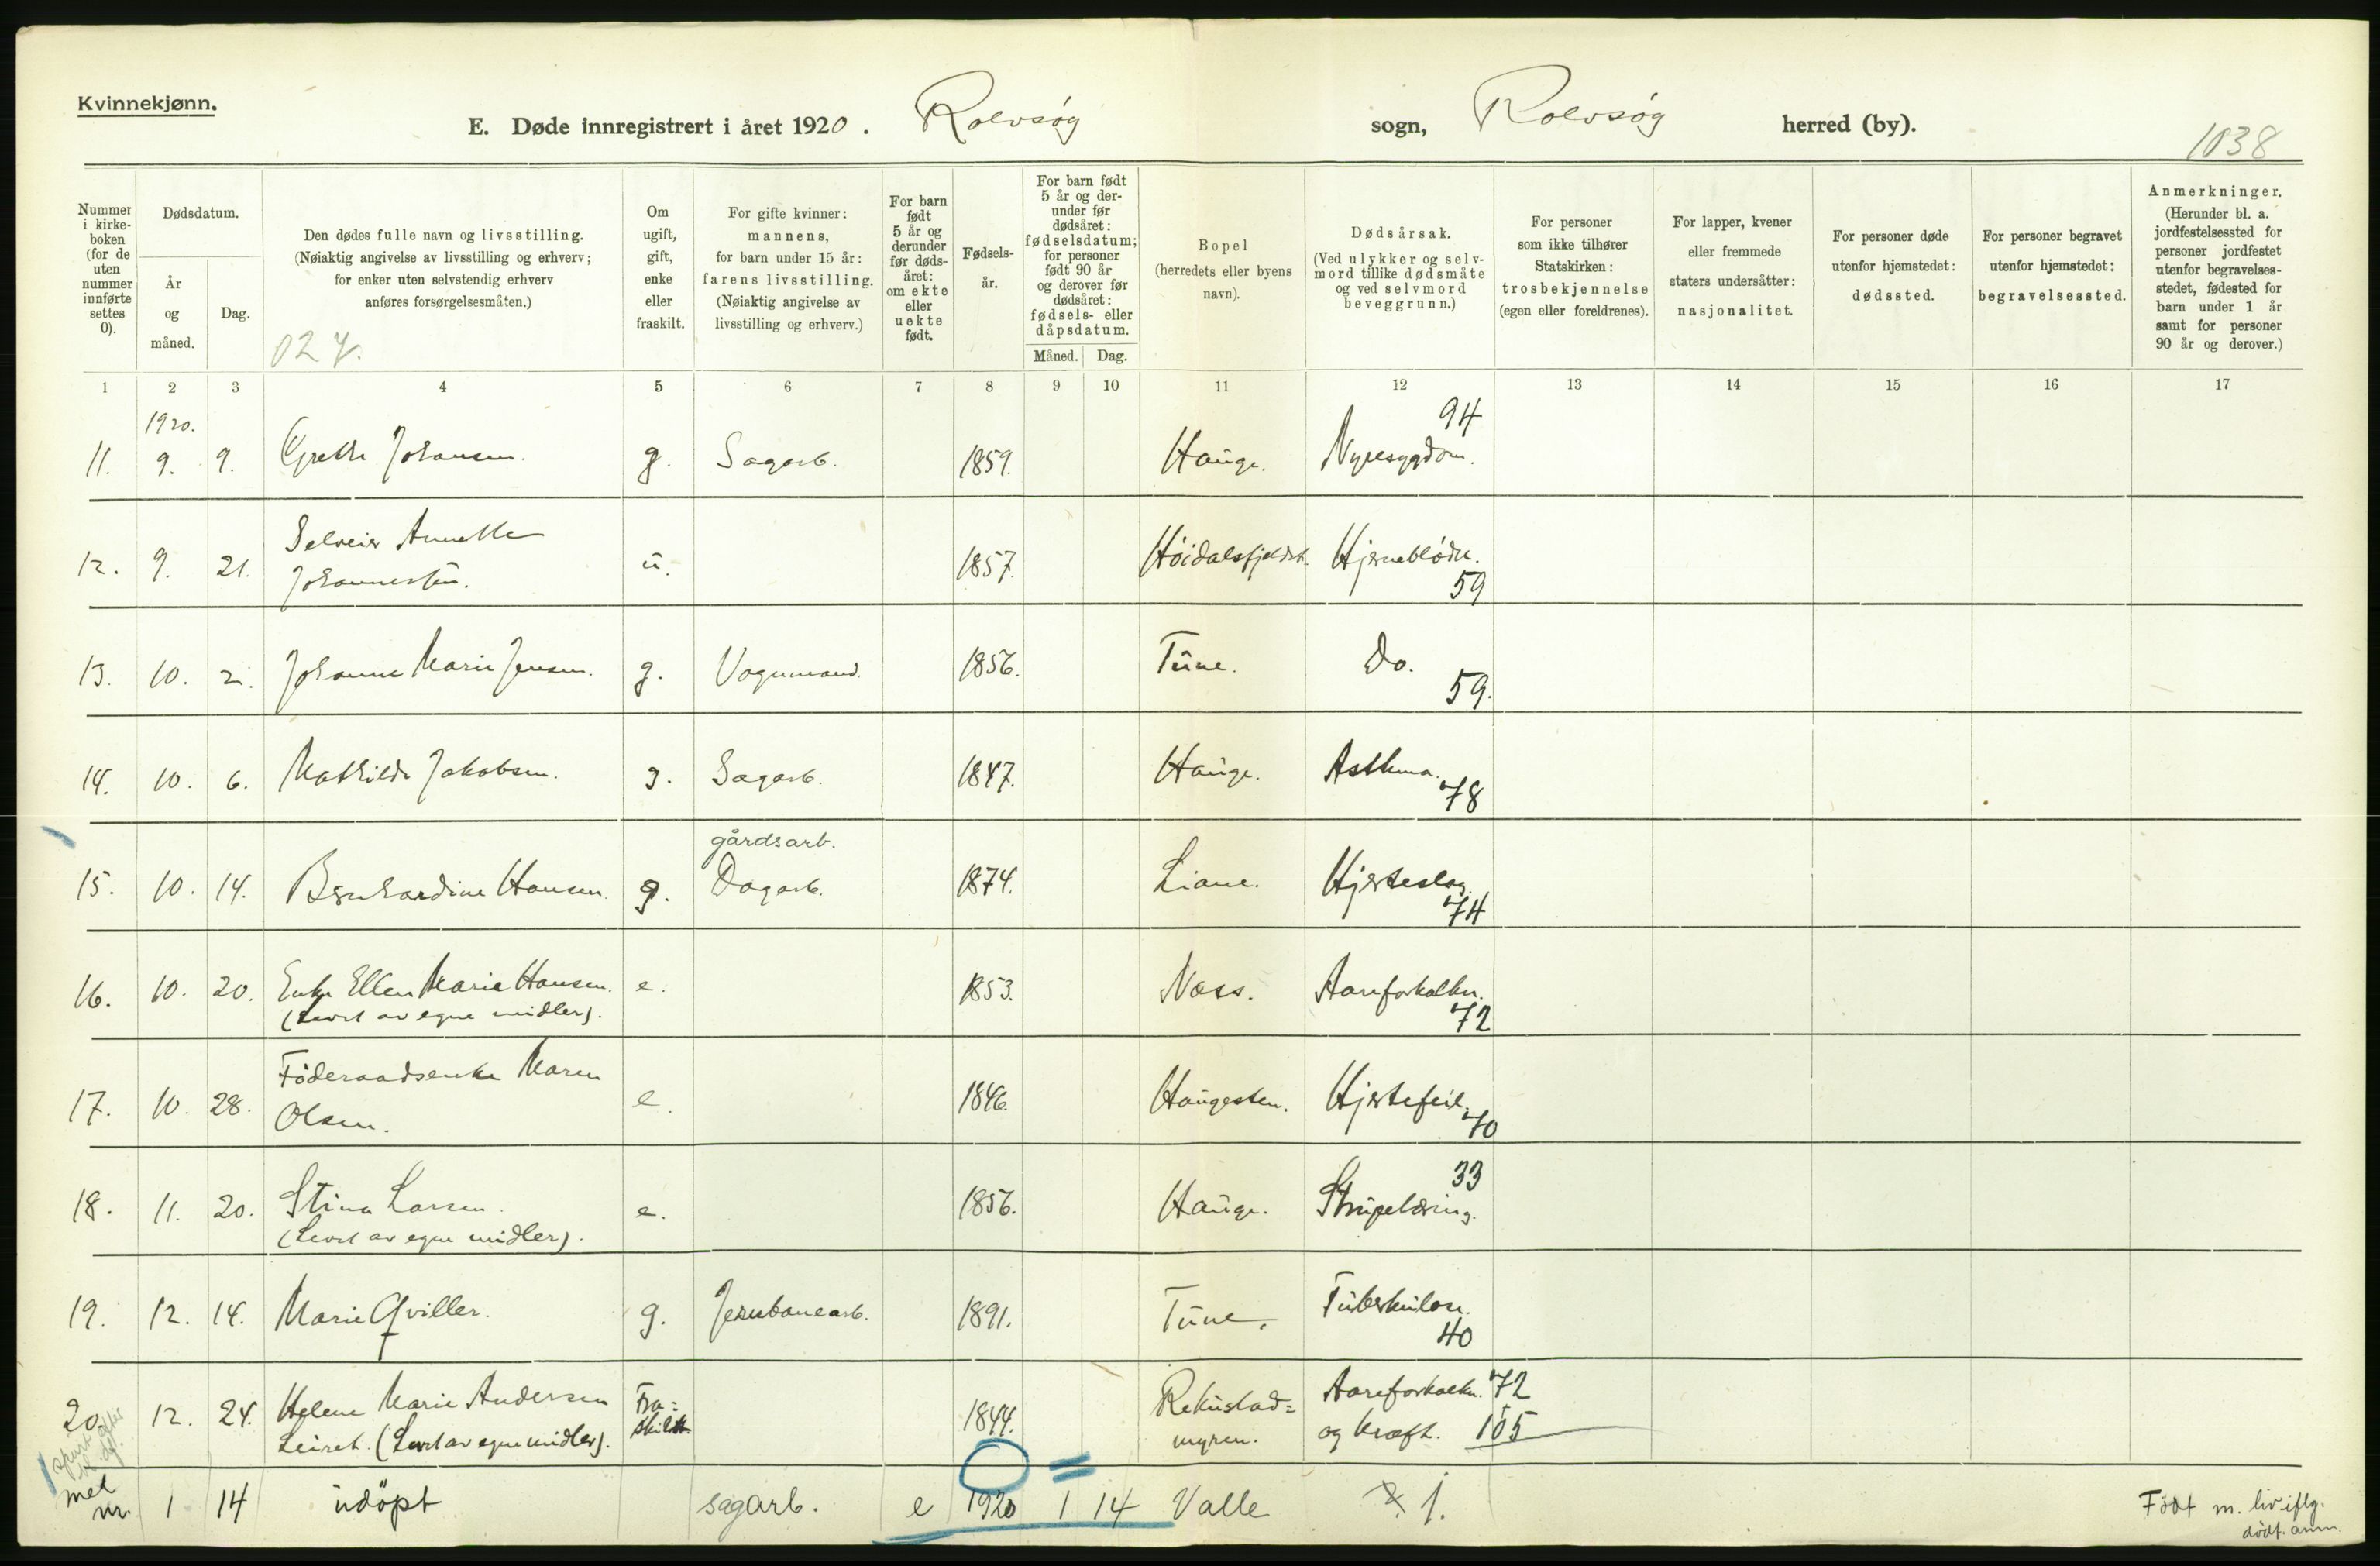 Kvinnekjønn.
E. Døde innregistrert i året 1920. Rolvsøy sogn, Rolvsøy herred (by).
1038
Nummer i kirkeboken (for de uten nummer innførte settes 0).
Dødsdatum.
År og måned.
Dag.
Den dødes fulle navn og livsstilling.
(Nøiaktig angivelse av livsstilling og erhverv;
for enker uten selvstendig erhverv
anføres forsørgelsesmåten.)
027.
Om ugift, gift, enke eller fraskilt.
For gifte kvinner: mannens, for barn under 15 år: farens livsstilling. (Nøiaktig angivelse av livsstilling og erhverv.)
For barn født 5 år og derunder før dødsåret: om ekte eller uekte født.
Fødselsår.
For barn født 5 år og derunder før dødsåret: fødselsdatum; for personer født 90 år og derover før dødsåret: fødsels- eller dåpsdatum.
Måned. Dag.
Bopel (herredets eller byens navn).
Dødsårsak. (Ved ulykker og selvmord tillike dødsmåte og ved selvmord beveggrunn.)
For personer som ikke tilhører Statskirken: trosbekjennelse (egen eller foreldrenes).
For lapper, kvener eller fremmede staters undersåtter: nasjonalitet.
For personer døde utenfor hjemstedet: dødssted.
For personer begravet utenfor hjemstedet: begravelsessted.
Anmerkninger. (Herunder bl. a. jordfestelsessted for personer jordfestet utenfor begravelsesstedet, fødested for barn under 1 år samt for personer 90 år og derover.)
1 2 3 4 5 6 7 8 9 10 11 12 13 14 15 16 17
1920. 94
11. 9. 9. Grethe Johansen. g. Sagarb. 1859. Hauge. Nyresygdom.
12. 9. 21. Selveier Annette Johannessen. u. 1857. Höidalsfjeldet. Hjerneblödn. 59
13. 10. 2. Johanne Marie Jensen. g. Vognmand. 1856. Tune. Do. 59.
14. 10. 6. Mathilde Jakobsen. g. Sagarb. 1847. Hauge. Asthma. 78
gårdsarb.
15. 10. 14. Bernhardine Hansen. g. Dagarb. 1874. Liane. Hjerteslag. 74
16. 10. 20. Enke Ellen Marie Hansen. e. 1853. Næss. Aareforkalkn. 72
(Levet av egne midler).
17. 10. 28. Föderaadsenke Maren Olsen. e. 1846. Haugesten. Hjertefeil. 70
18. 11. 20. Stina Larsen. e. 1856. Hauge. Strupetæring. 33
(Levet av egne midler).
19. 12. 14. Marie Qviller. g. Jernbanearb. 1891. Tune. Tuberkulose. 40
20. 12. 24. Helene Marie Andersen Fra= 1844. Rekustad= Aareforkalkn. 72
Leiret. (Levet av egne midler). skilt myren. og kræft. 105
med nr. 1 14 udöpt sagarb. e 1920 1 14 Valle 1. Födt m. liv iflg.
dödf. anm.